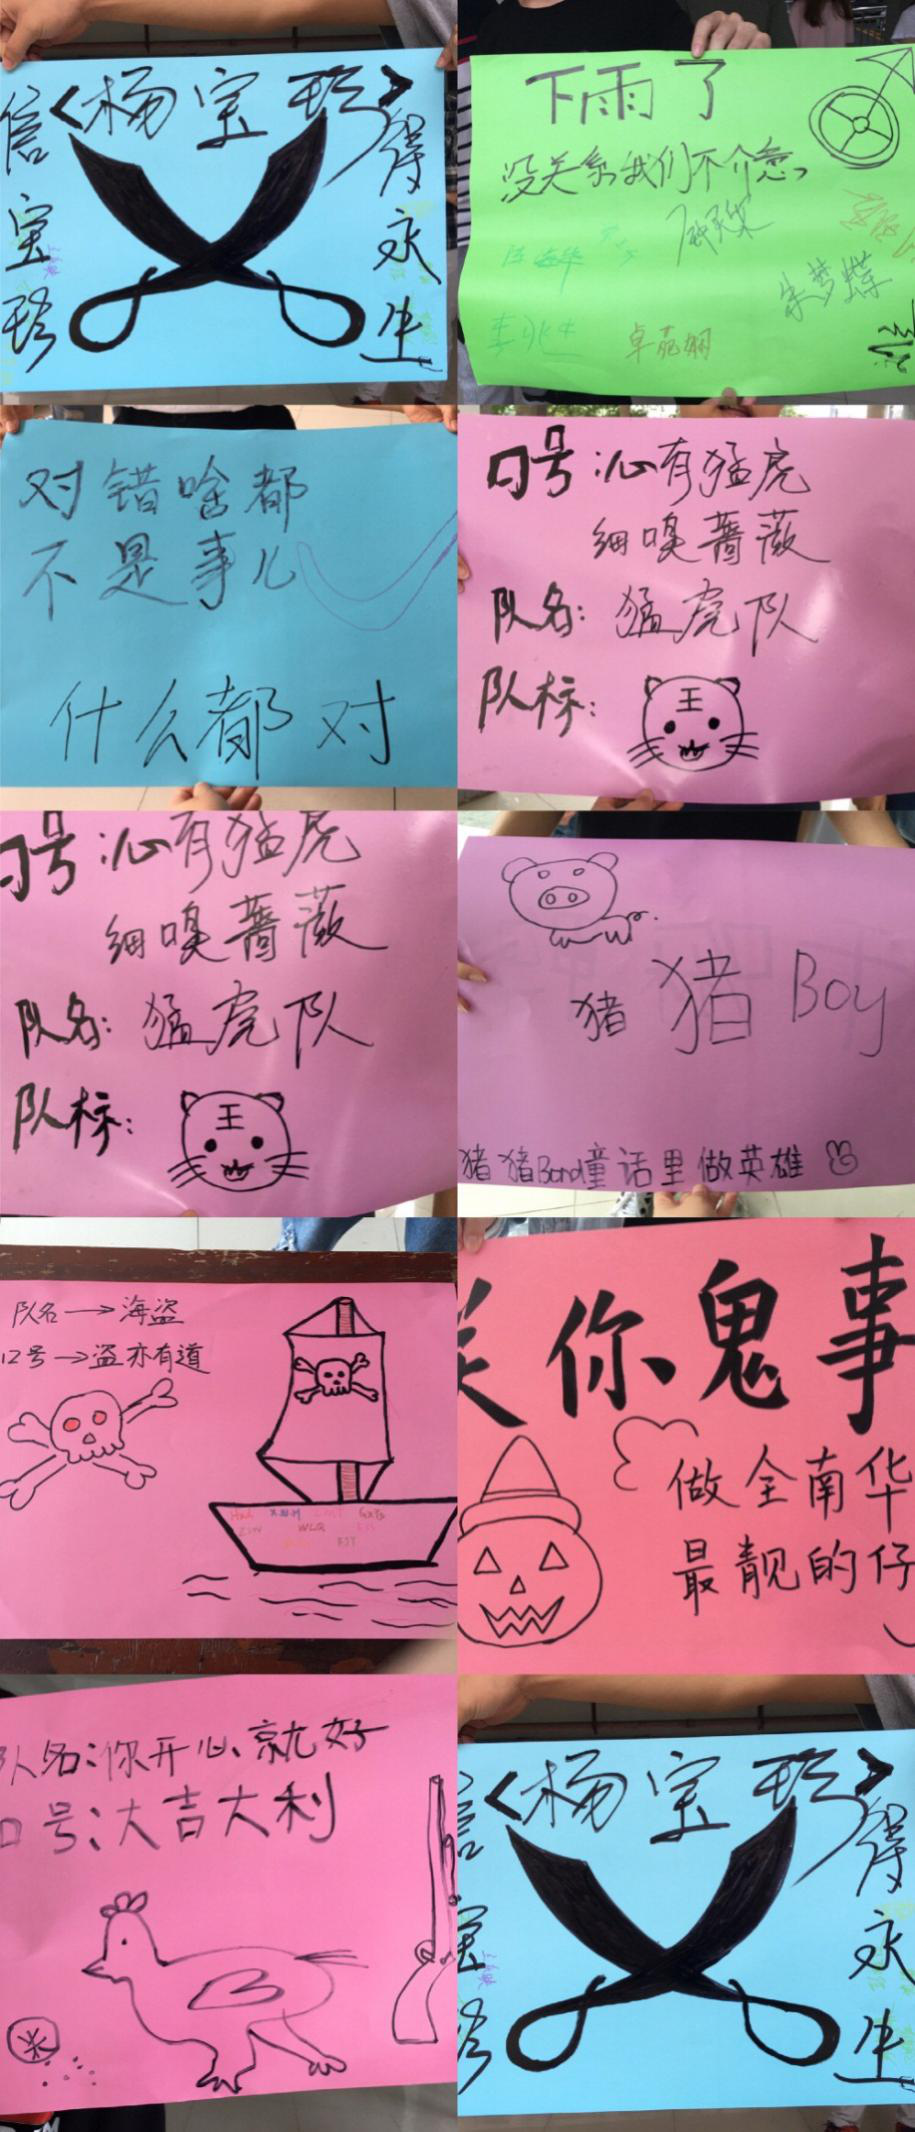 <杨宝玲>
信宝玲
得永生
下雨了
没关系我们不介意
朱梦蝶
卓苑娴
对错啥都
不是事儿
什么都对
口号:心有猛虎
细嗅蔷薇
队名:猛虎队
队标:
王
口号:心有猛虎
细嗅蔷薇
队名:猛虎队
队标:
王
猪猪Boy
猪猪Band童话里做英雄
队名→海盗
口号→盗亦有道
WLQ
你鬼事
做全南华
最靓的仔
队名:你开心就好
口号:大吉大利
<杨宝玲>
信宝玲
得永生